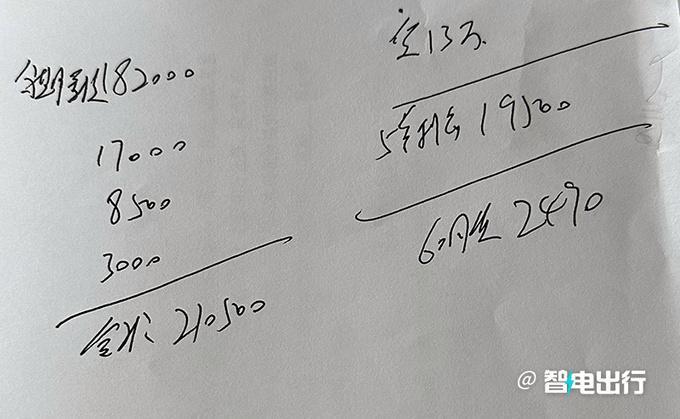 182000
17000
8500
3000
全款 210500
贷13万
5年利息 19500
60月供 2490
@智电出行